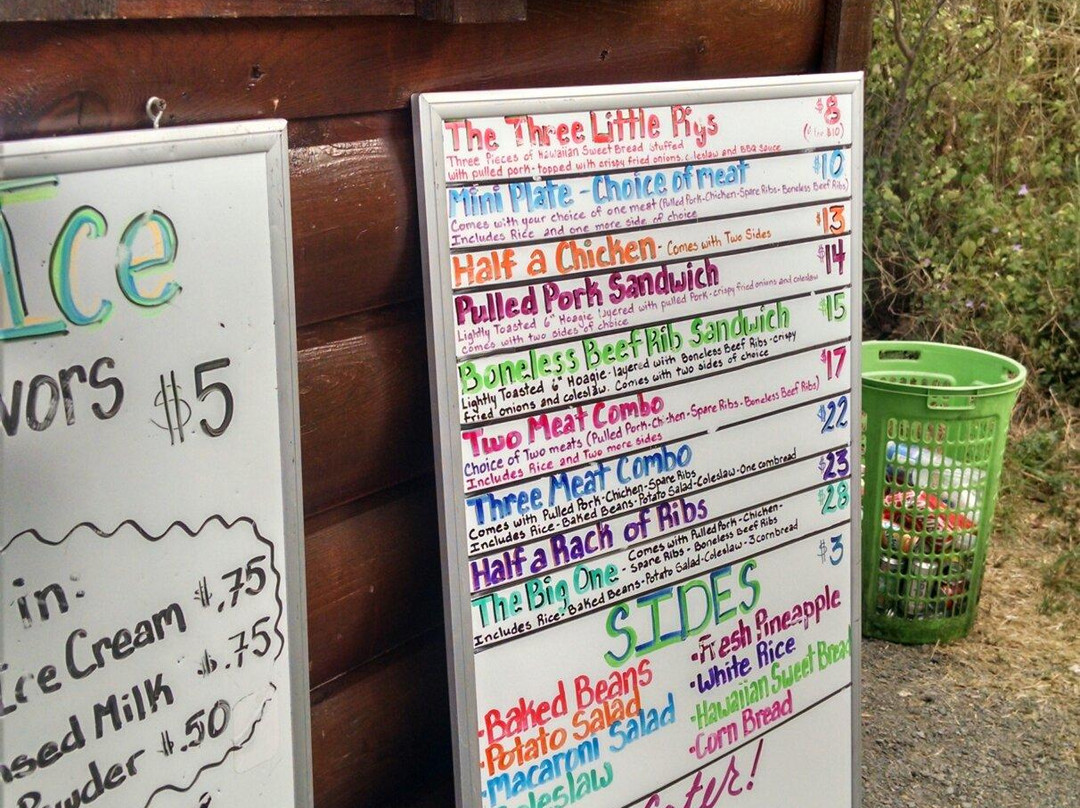 Ice
vors $5
in:
Ice Cream $.75
Milk $.75
$.50
The Three Little Pigs $8
Three Pieces of Hawaiian Sweet Bread stuffed
with pulled pork-topped with crispy fried onions, coleslaw and BBQ sauce
Mini Plate - Choice of meat $10
Comes with your choice of one meat (Pulled Pork-Chicken-Spare Ribs-Boneless Beef Ribs)
Includes Rice and one more side of choice
Half a Chicken - Comes with Two Sides $13
Pulled Pork Sandwich $14
Lightly Toasted 6" Hoagie layered with pulled Pork-crispy fried onions and coleslaw
comes with two sides of choice
Boneless Beef Rib Sandwich $15
Lightly Toasted 6" Hoagie-layered with Boneless Beef Ribs-crispy
fried onions and coleslaw. Comes with two sides of choice
Two Meat Combo $17
Choice of Two meats (Pulled Pork-Chicken-Spare Ribs-Boneless Beef Ribs)
Includes Rice and Two more sides
Three Meat Combo $22
Comes with Pulled Pork-Chicken-Spare Ribs
Includes Rice-Baked Beans-Potato Salad-Coleslaw-One cornbread
Half a Rack of Ribs $23
The Big One - Comes with Pulled Pork-Chicken- $28
Spare Ribs-Boneless Beef Ribs
Includes Rice-Baked Beans-Potato Salad-Coleslaw-3 cornbread
SIDES $3
•Baked Beans
•Potato Salad
•Macaroni Salad
Coleslaw
•Fresh Pineapple
•White Rice
•Hawaiian Sweet Bread
•Corn Bread